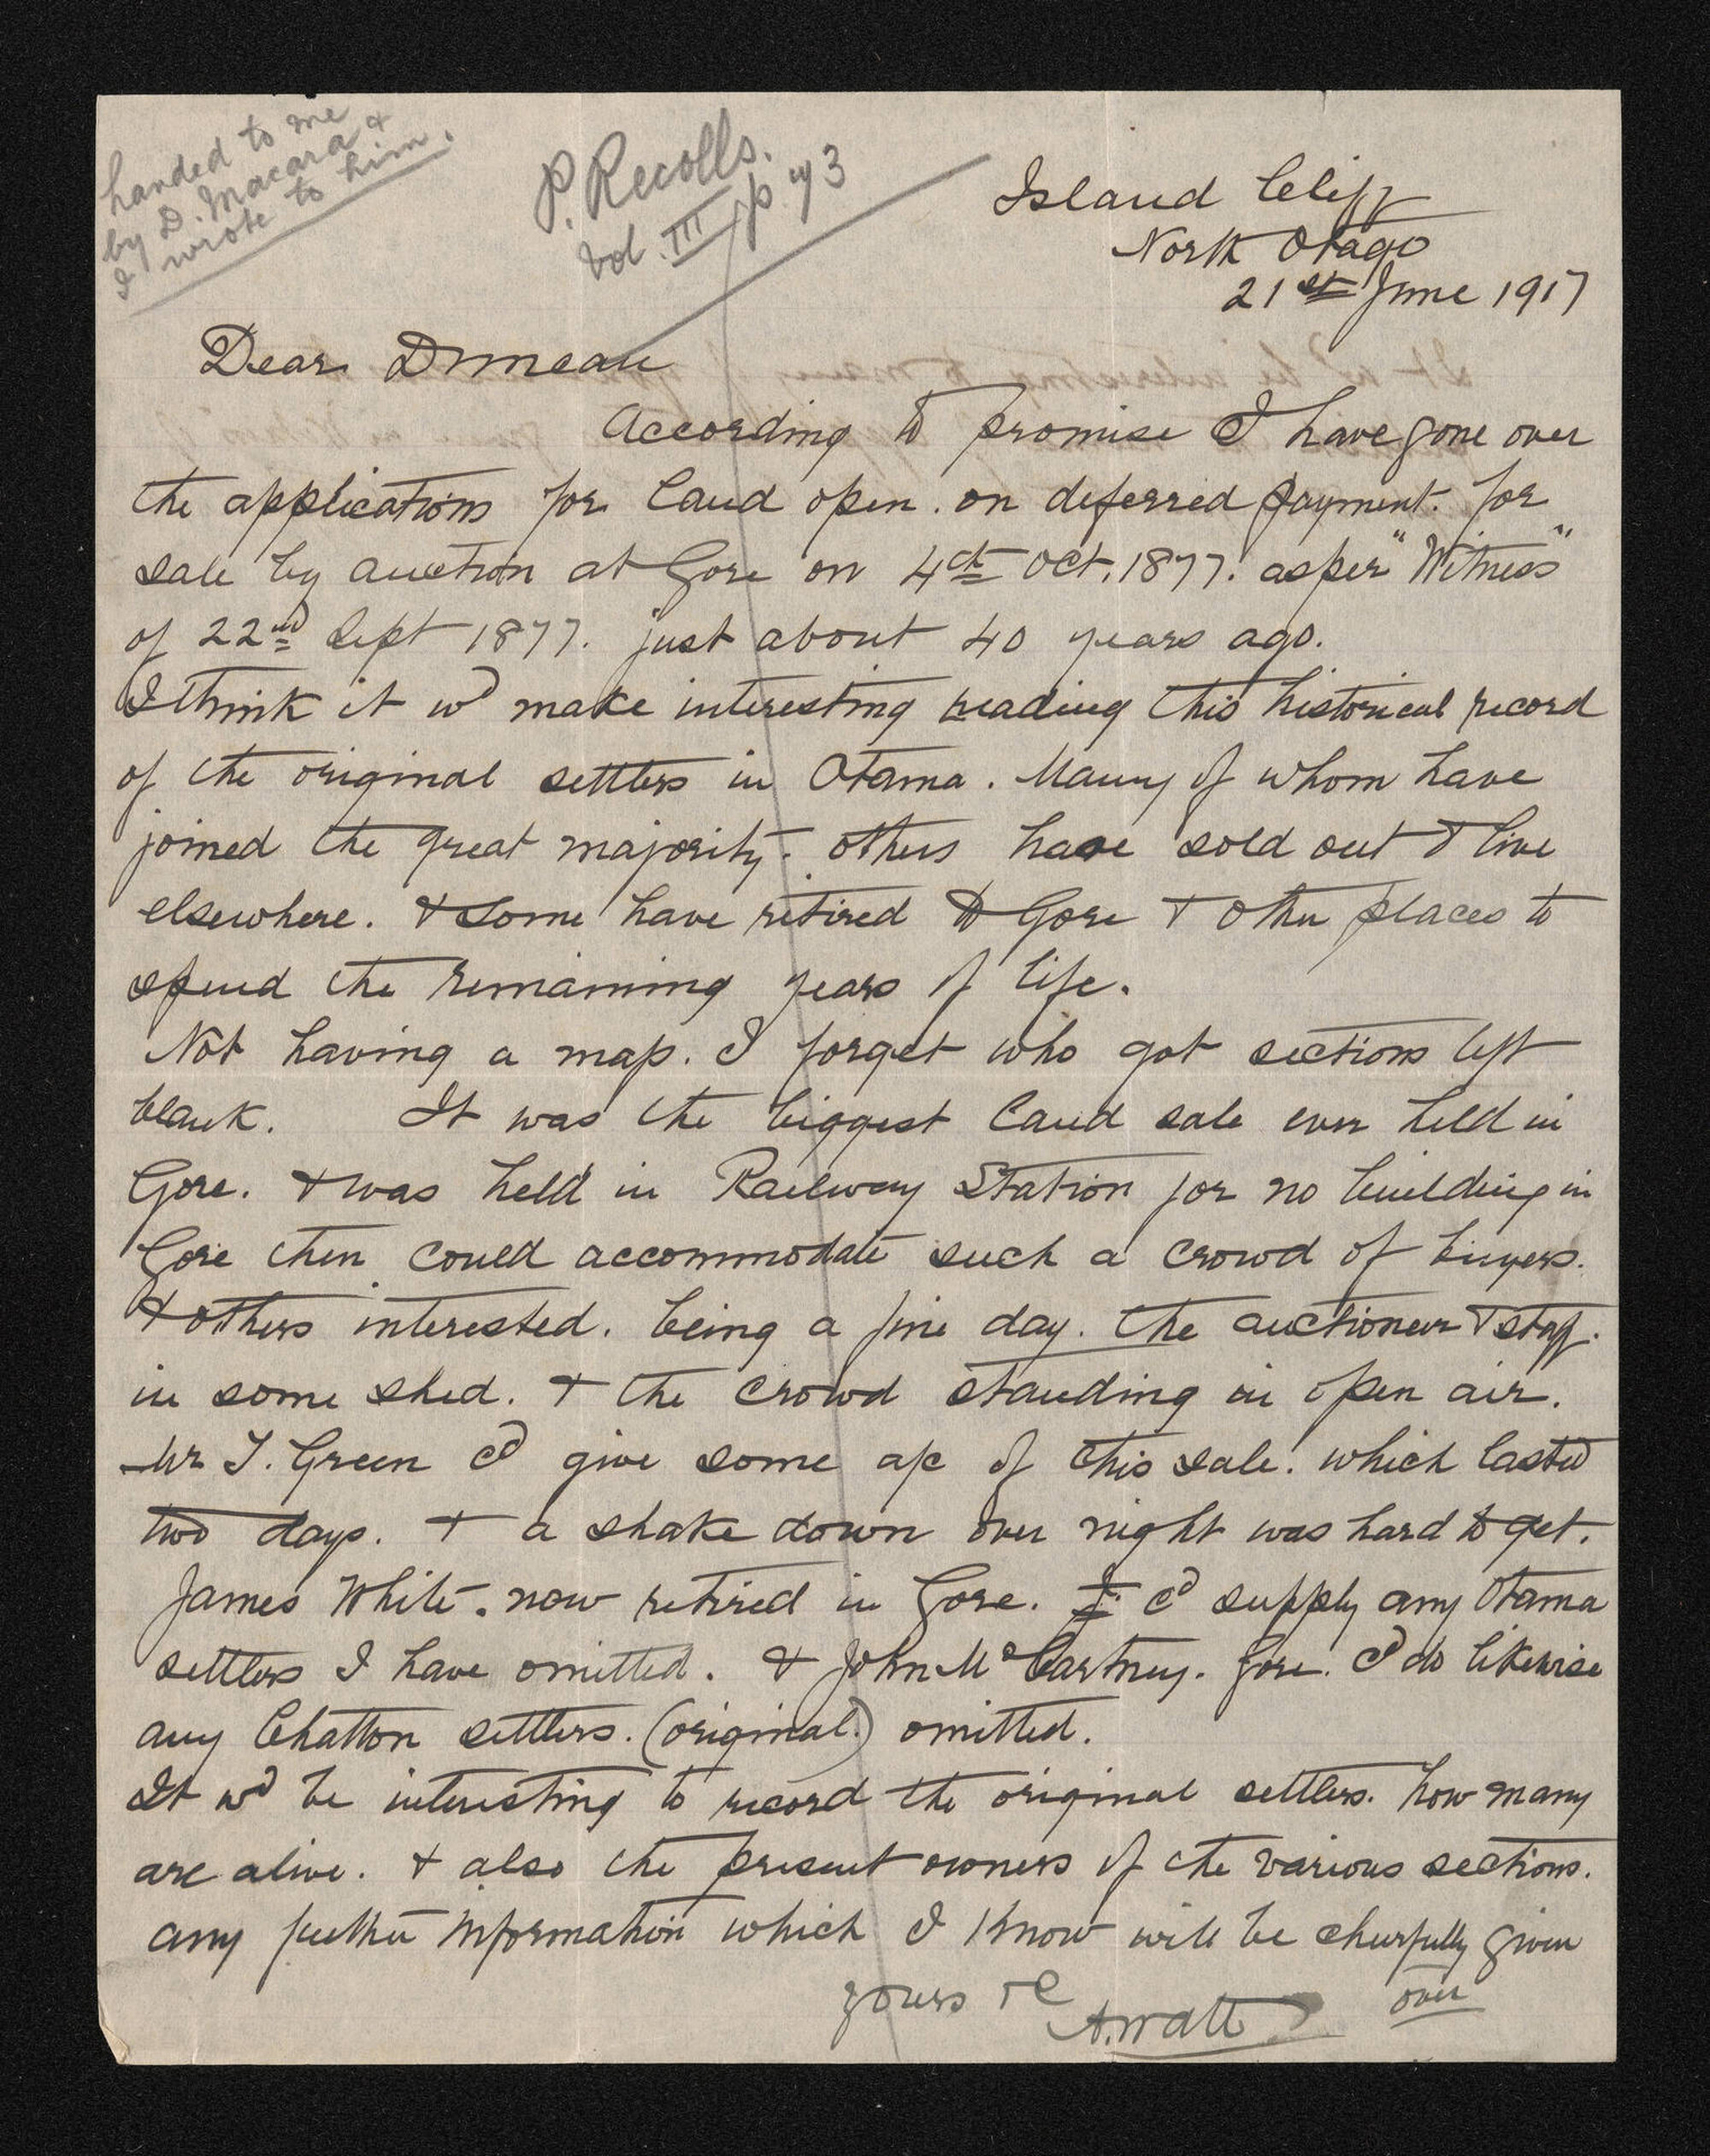 handed to me
by D. Macara &
I wrote to him.
P. Recolls.
Vol. III p. 43
Island Cliff
North Otago
21st June 1917
Dear Duncan
According to promise I have gone over
the applications for land open. on deferred payment. for
sale by auction at Gore on 4th Oct. 1877. as per "Witness"
of 22nd Sept 1877. just about 40 years ago.
I think it wd make interesting reading this historical record
of the original settlers in Otama. Many of whom have
joined the great majority. others have sold out & live
elsewhere. & some have retired to Gore & other places to
spend the remaining years of life.
Not having a map. I forget who got sections left
blank. It was the biggest land sale ever held in
Gore. & was held in Railway Station for no building in
Gore then could accommodate such a crowd of buyers.
& others interested. being a fine day. the auctioneer & staff.
in some shed. & the crowd standing in open air.
Mr T. Green cd give some a/c of this sale. which lasted
two days. & a shake down over night was hard to get.
James White. now retired in Gore. cd supply any Otama
settlers I have omitted. & John McCartney. Gore. cd do likewise
any Chatton settlers. (original.) omitted.
It wd be interesting to record the original settlers. how many
are alive. & also the present owners of the various sections.
any further information which I know will be cheerfully given
yours &c
A. Watt
over